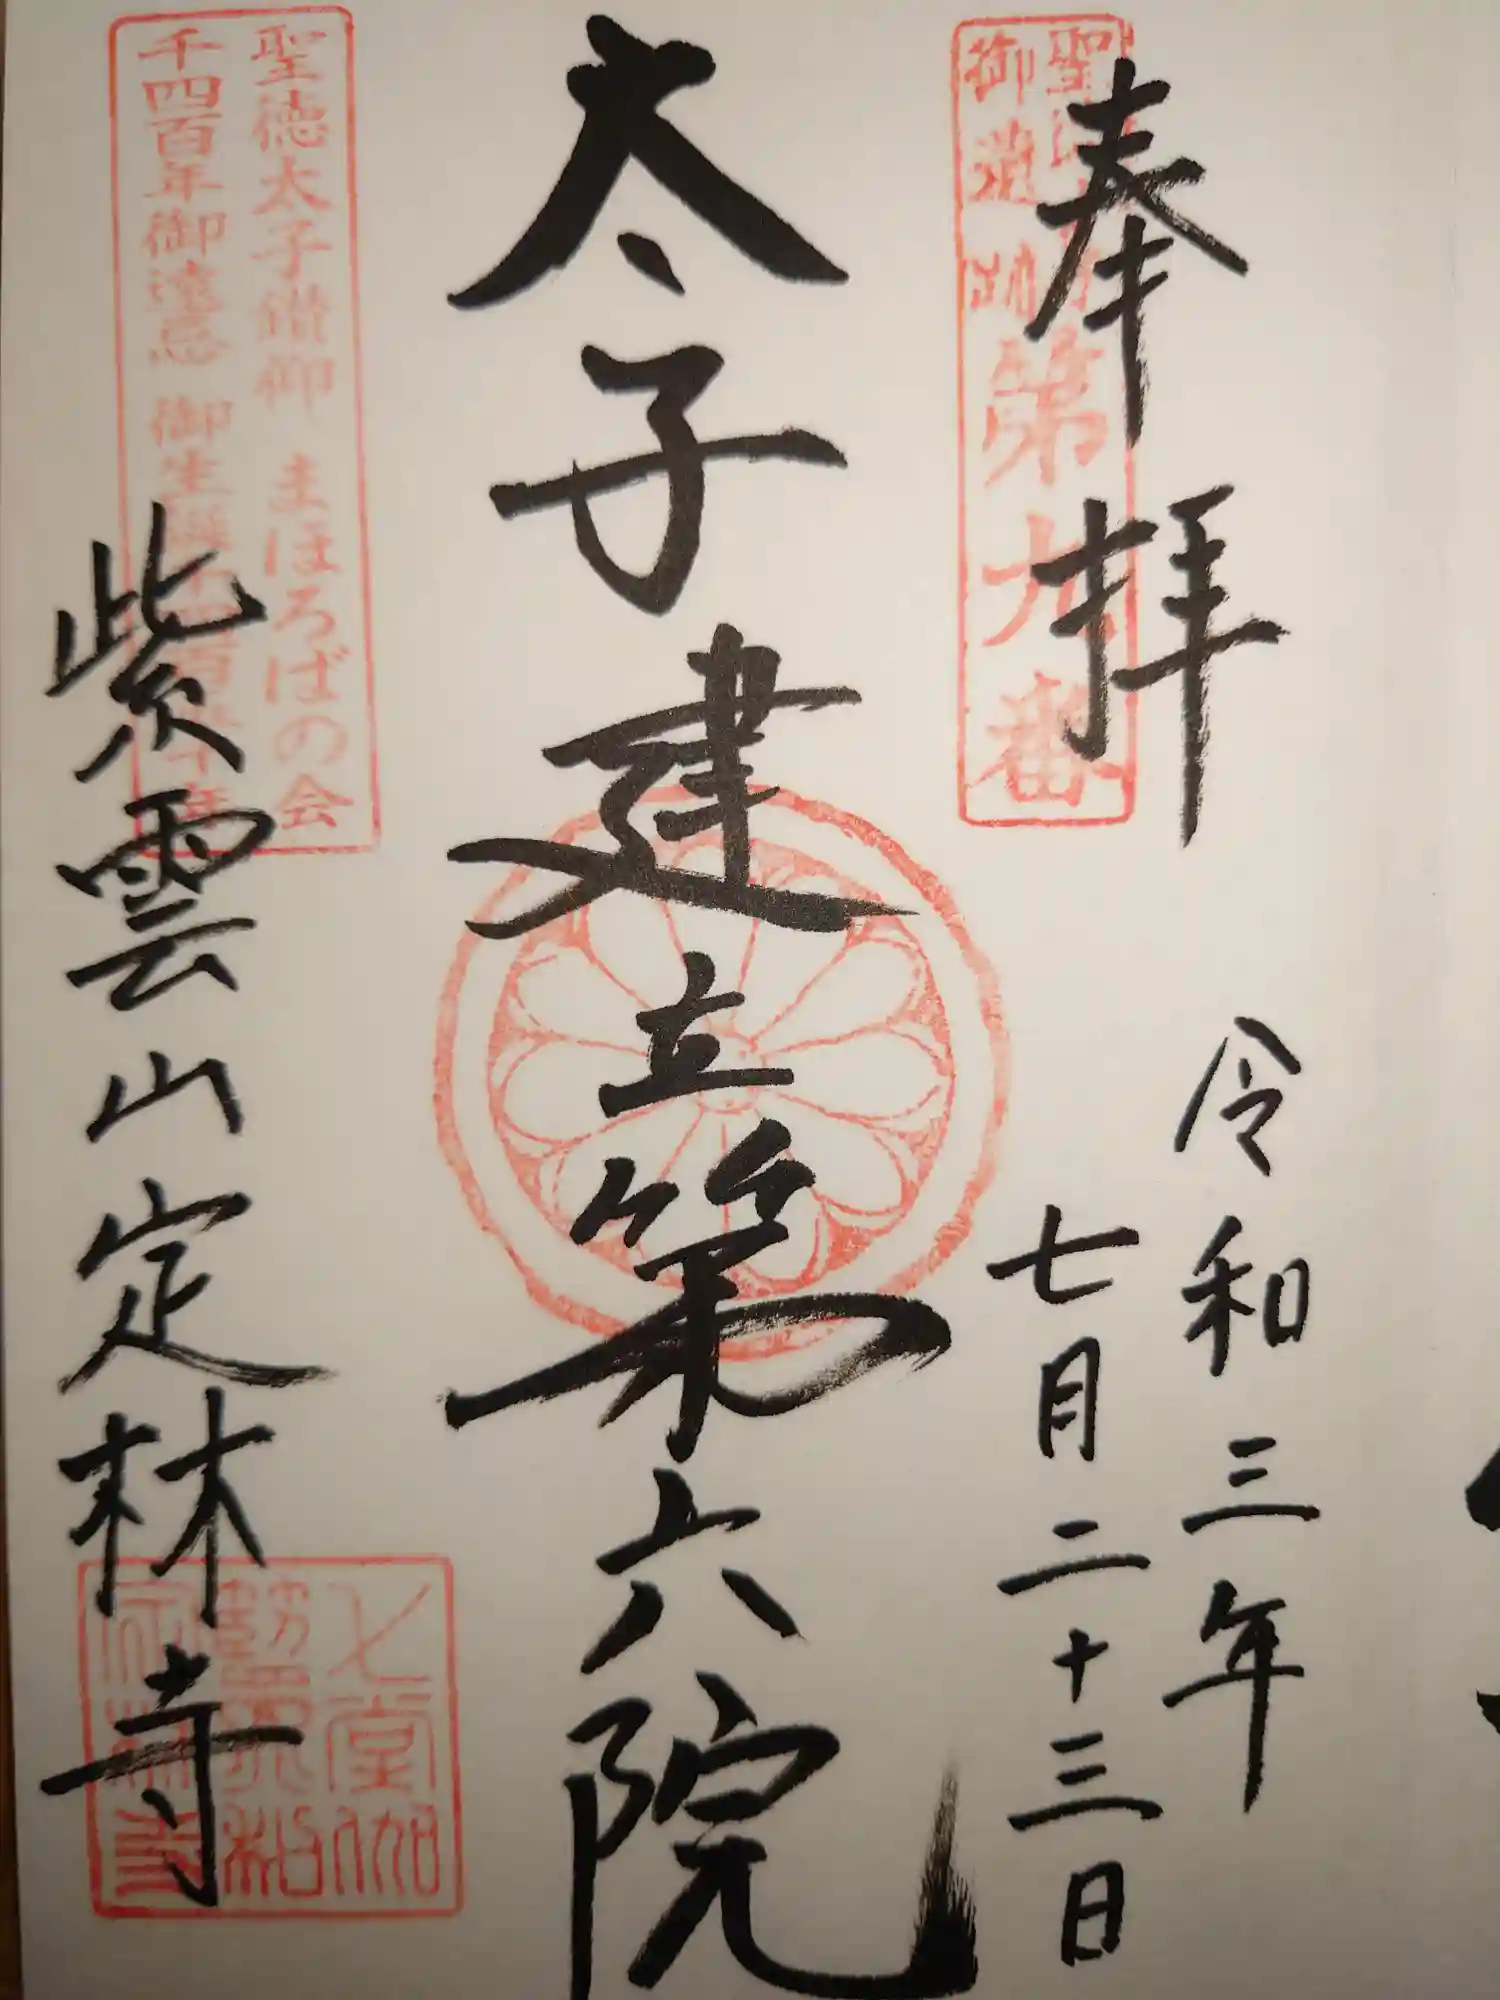 奉拝
令和三年
七月二十三日
第九番
太子建立第六院
聖徳太子讃仰 まほろばの会
千四百年御遠忌 御生誕
紫雲山定林寺
七堂伽
藍
定林寺